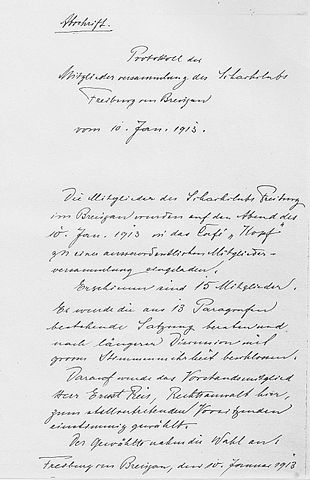 Abschrift.
Protokoll der
Mitgliederversammlung des Schachclubs
Freiburg im Breisgau
vom 10. Jan. 1913.
Die Mitglieder des Schachclubs Freiburg
im Breisgau wurden auf den Abend des
10. Jan. 1913 in das Café "Kopf"
zu einer ausserordentlichen Mitglieder-
versammlung eingeladen.
Erschienen sind 15 Mitglieder.
Es wurde die aus 13 Paragrafen
bestehende Satzung beraten und
nach längerer Discussion mit
gross Stimmenmehrheit beschlossen.
Darauf wurde das Vorstandsmitglied
Herr Ernst Reis, Rechtsanwalt hier,
zum stellvertretenden Vorsitzenden
einstimmig gewählt.
Der Gewählte nahm die Wahl an.
Freiburg im Breisgau, den 10. Januar 1913